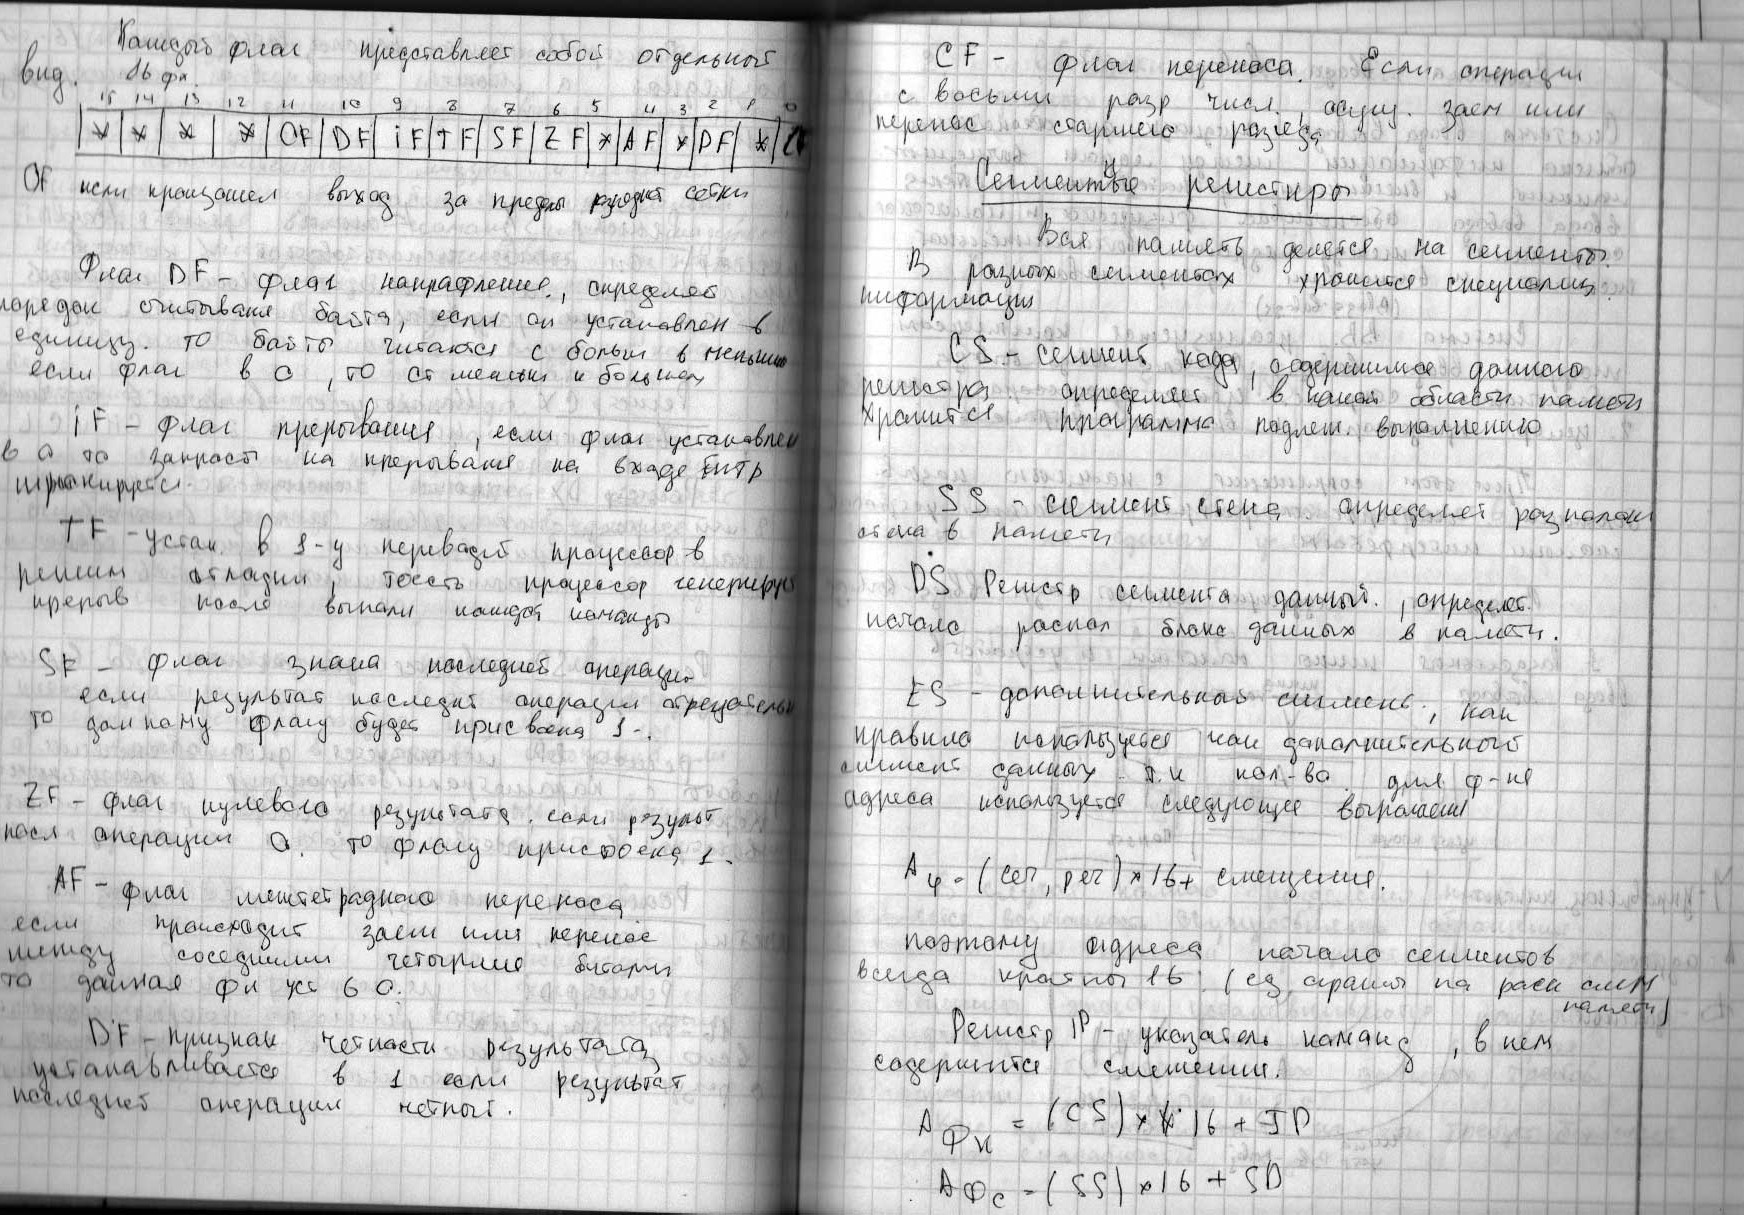 Каждый флаг представляет собой отдельной
вид. 16 фл.
15 14 13 12 11 10 9 8 7 6 5 4 3 2 1 0
* * * * OF DF iF TF SF ZF * AF * PF * C
OF если произошел выход за пределы разрядной сетки
Флаг DF - флаг напрафление, определяет
порядок считывания байта, если он установлен в
единицу. то байты читаются с больш в меньшию
если флаг в 0, то от меньшы к большем
iF - флаг прерывания, если флаг установлен
в 0 то запросы на прерывание на входе
игронируется.
TF - устан. в 1-у переводит процессор в
режим отладки, тоесть процессор генерирует
прерыв после выполн каждой команды
SF - флаг знака последней операции
если результат последней операции отрецательн
то данному флагу будет присвоена 1-.
ZF - флаг нулевого результата. если результ
посл операции 0. то флагу присвоена 1.
AF - флаг межтетрадного переноса
если происходит заем или перенос
между соседними четырмие битами
то данная фл уст 0.
PF - признак четности результата,
устанавливается в 1 если результат
последней операции четный.
CF - флаг переноса. Если операции
с восьми разр числ. осущ. заем или
перенос старшего разряда
Сегментные регистры
Вся память делется на сегменты.
В разных сегментах хранится специализ.
информация
CS - сегмент кода, содержимое данного
регистра определяет в какой области памяти
хранится программа подлеж. выполнению
SS - сегмент стека. определяет разположен
стека в памяти
DS Регистр сегмента данный., определет.
начало распол блока данных в памяти.
ES - дополнительной сегмент., как
правило используется как дополнительного
сегмент данных т.к кол-во для ф-не
адреса используется следующее выражений
Aφ = (сег, рег) × 16 + смещение.
поэтому адреса начало сегментов
всегда кратны 16.
памяти)
Регистр IP - указатель команд, в нем
содержится смещении.
AФк = (CS) × 16 + IP
AФс = (SS) × 16 + SP